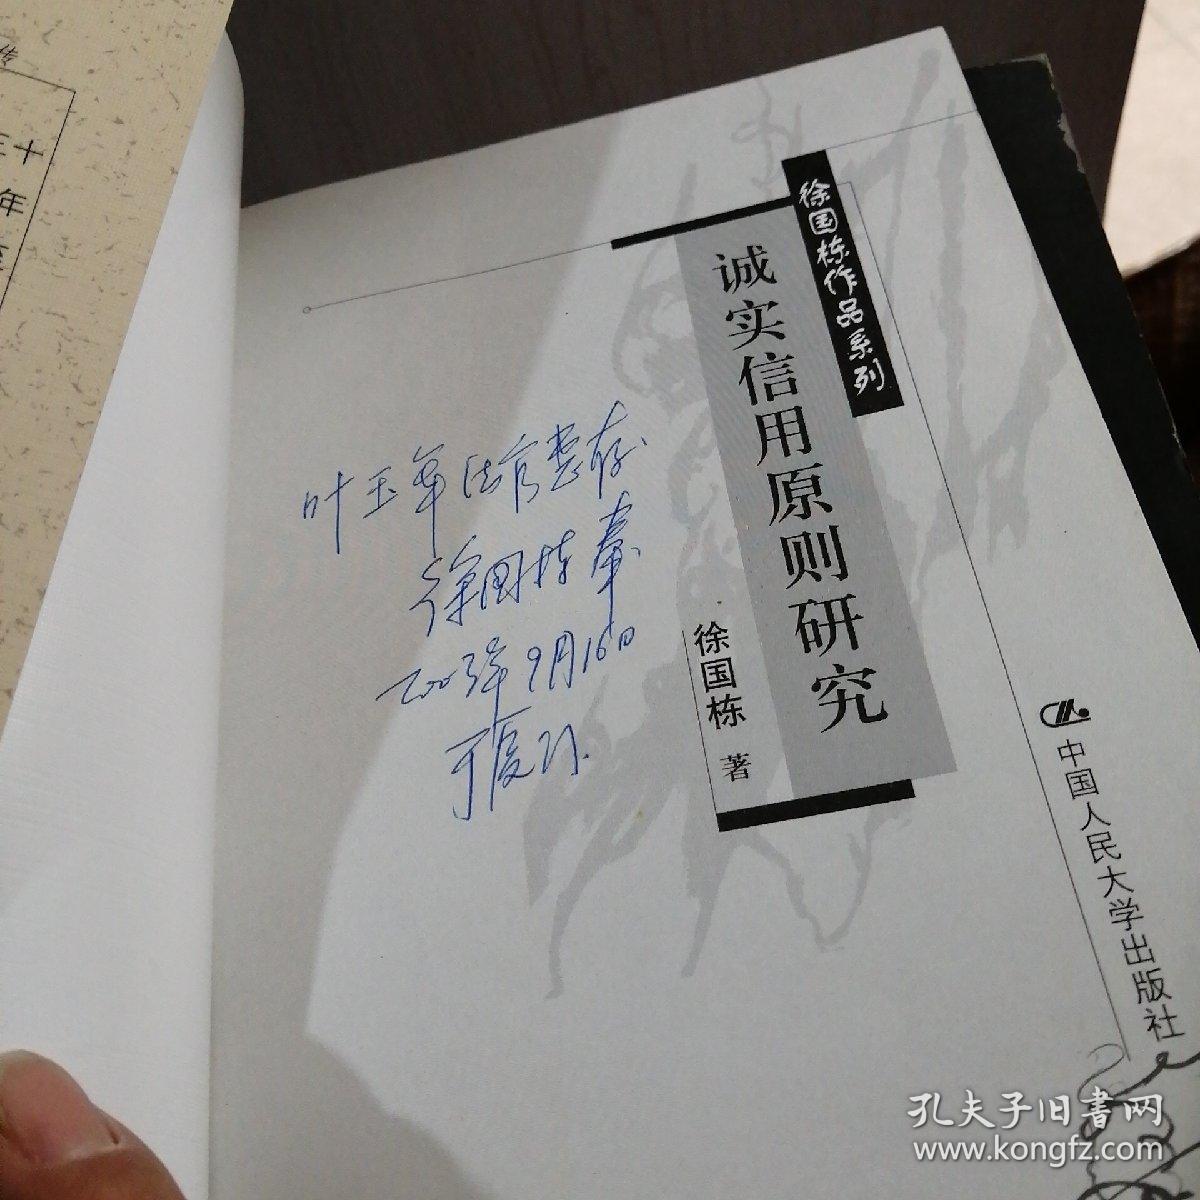 传
三十
年
徐国栋作品系列
诚实信用原则研究
徐国栋 著
叶玉军法官惠存
徐国栋 奉
2003年9月16日
于厦门
中国人民大学出版社
孔夫子旧书网
www.kongfz.com